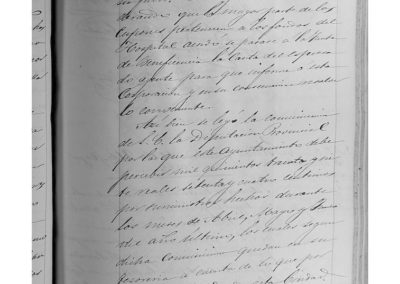 derando que la mayor parte de los
cupones pertenecen a los fondos del
Hospital acordó se pasase a la Junta
de Beneficencia la Carta del espresa
do agente para que informe a esta
Corporacion y en su consecuencia resolver
lo conveniente.
Asi bien se leyó la comunicacion
de S.E. la Diputacion Provincial
por la que este Ayuntamiento debe
percibir mil quinientos treinta y sie
te reales setenta y cuatro centimos
por suministros hechos durante
los meses de Abril, Mayo y Junio
del año último, los cuales segun
dicha comunicacion quedan en su
tesoreria a cuenta de lo que por
de esta Ciudad